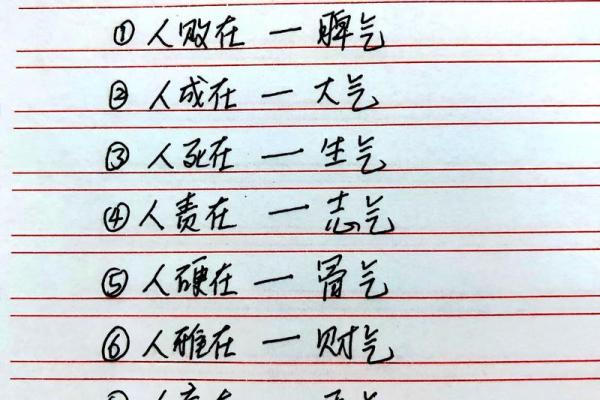 ① 人败在 — 脾气
② 人成在 — 大气
③ 人死在 — 生气
④ 人责在 — 志气
⑤ 人硬在 — 骨气
⑥ 人雅在 — 财气